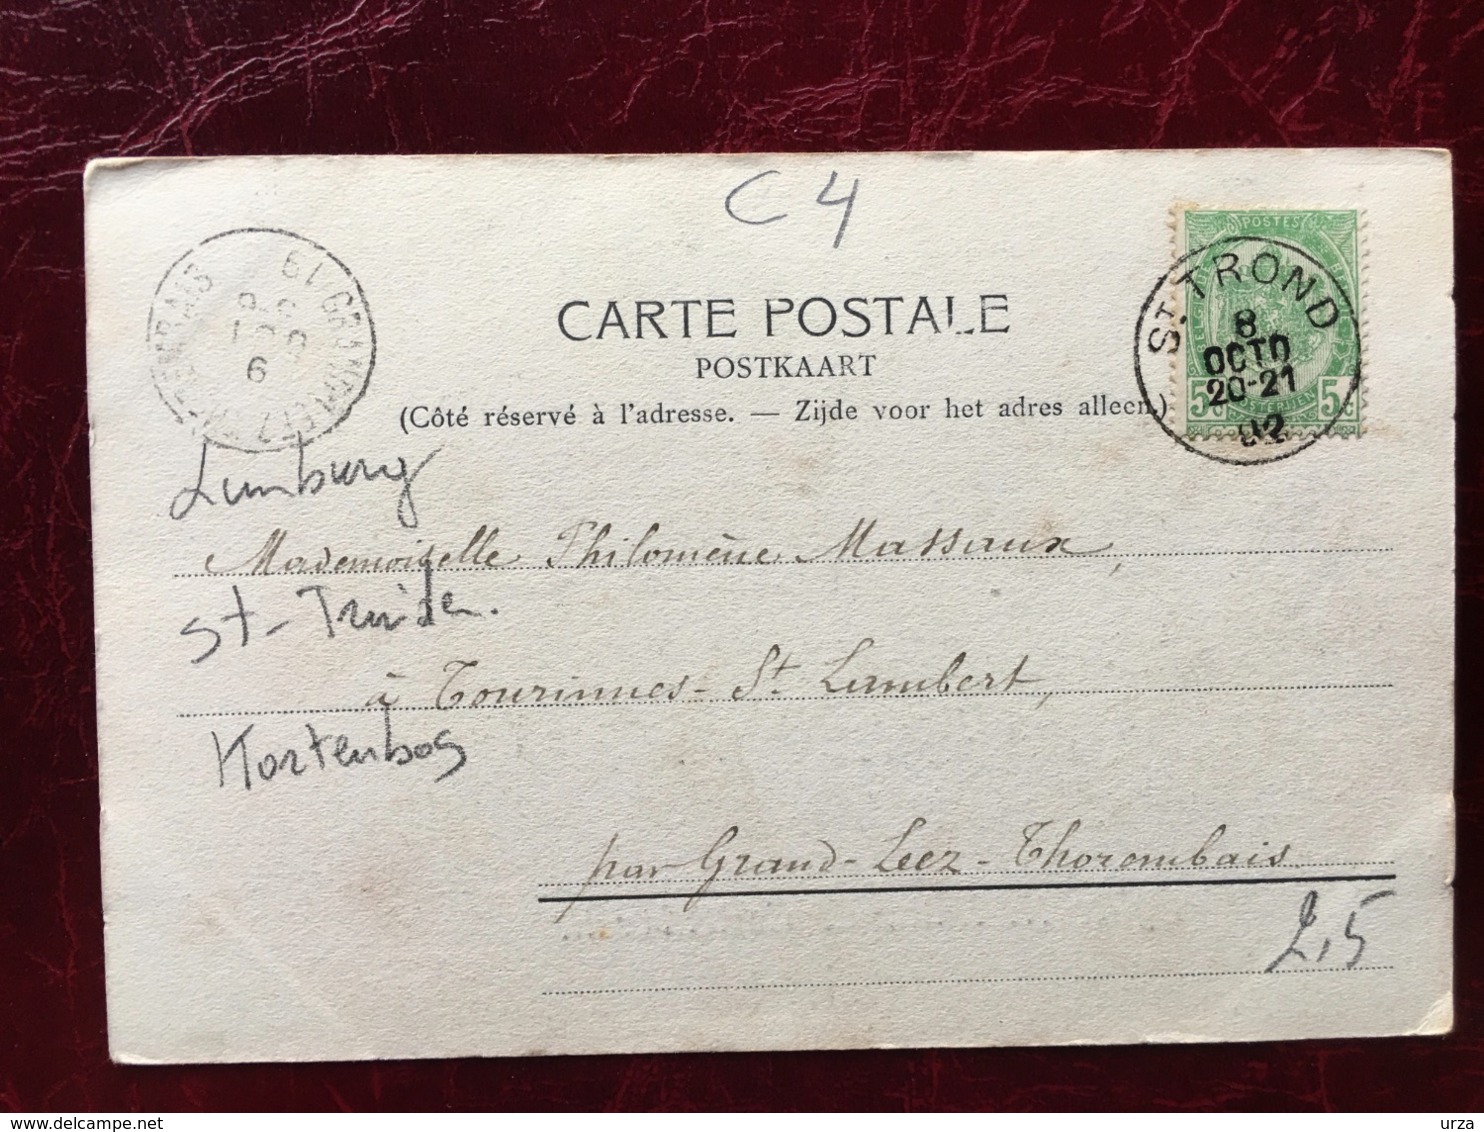 C 4
POSTES
ST. TROND
8
OCTO
20-21
02
5c 5c
CARTE POSTALE
POSTKAART
(Côté réservé à l'adresse. — Zijde voor het adres alleen.)
Limburg
Mademoiselle Philomène Massaux,
St-Truiden.
à Tourinnes-St Lambert,
Kortenbos
par Grand-Leez-Thorembais
2,5
delcampe.net
urza